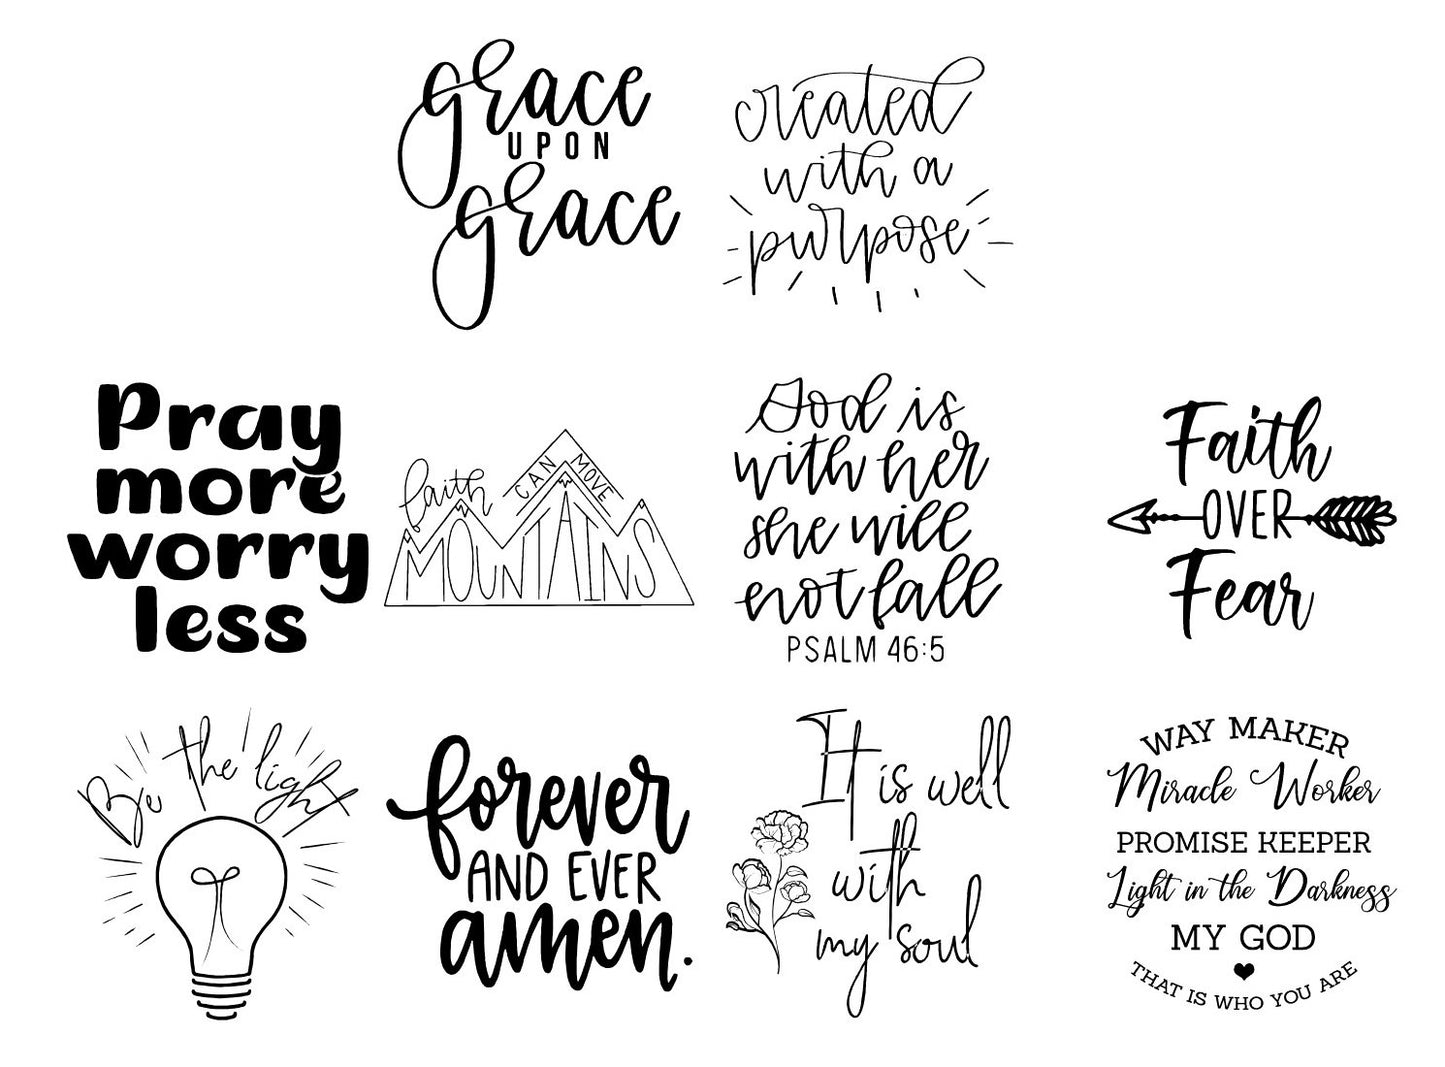 grace
UPON
grace
created
with a
purpose
Pray
more
worry
less
faith
CAN MOVE
MOUNTAINS
God is
with her
she will
not fall
PSALM 46:5
Faith
OVER
Fear
Be the light
forever
AND EVER
amen.
It is well
with
my soul
WAY MAKER
Miracle Worker
PROMISE KEEPER
Light in the Darkness
MY GOD
THAT IS WHO YOU ARE